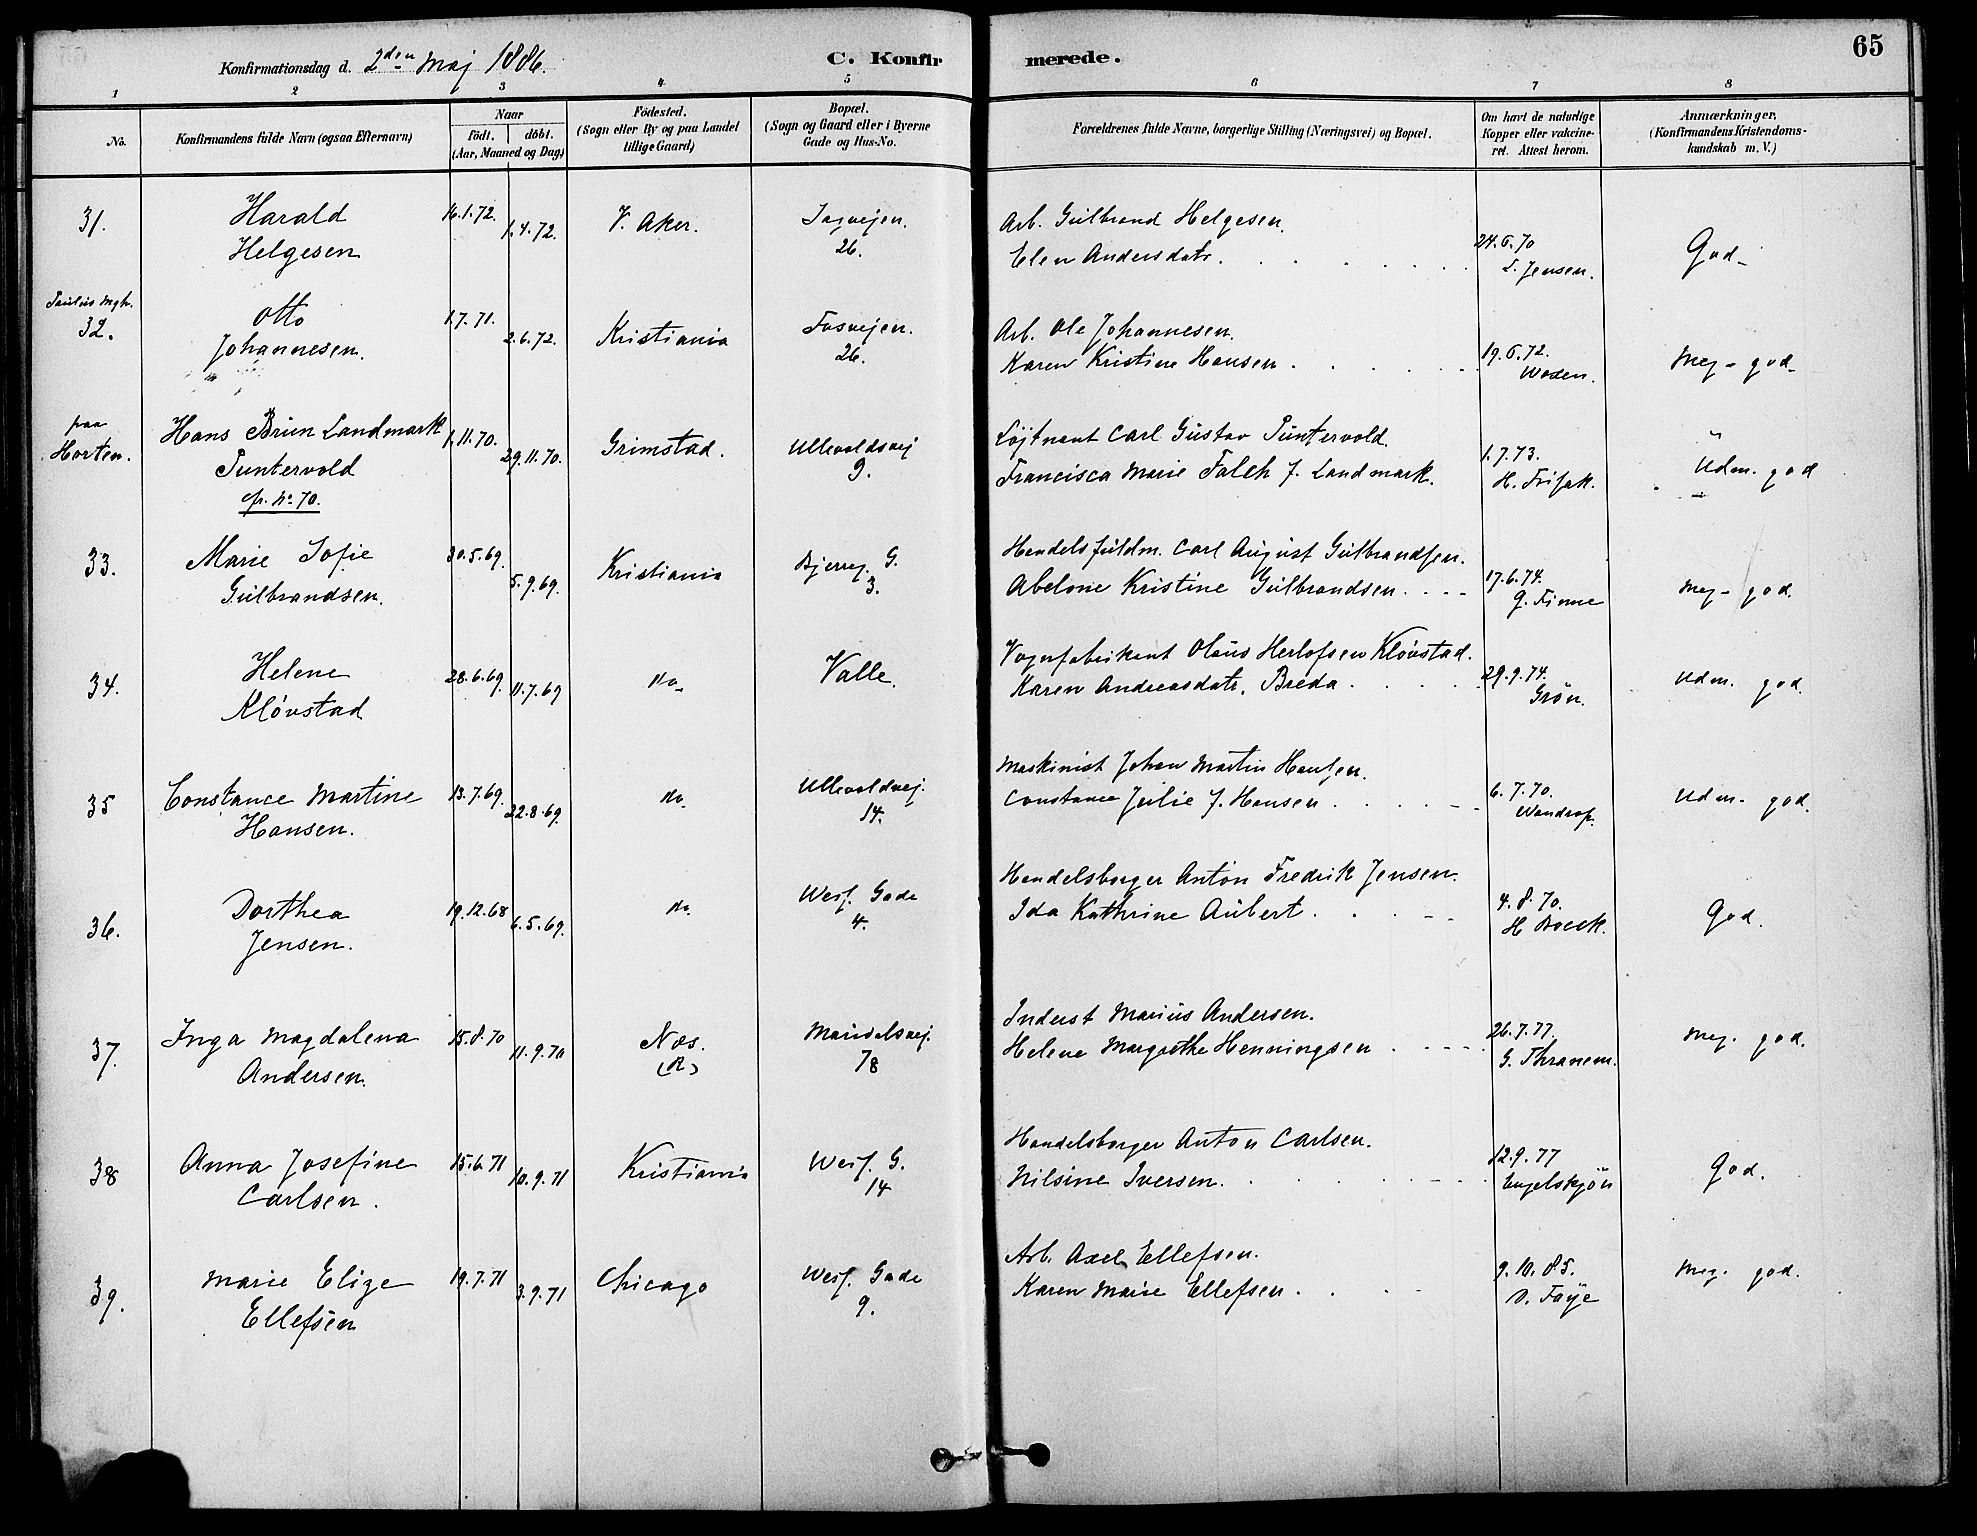 65
Konfirmationsdag d. 2den Maj 1886.
C. Konfirmerede.
1 2 3 4 5 6 7 8
No.
Konfirmandens fulde Navn (ogsaa Efternavn)
Naar
født. døbt.
(Aar, Maaned og Dag)
Fødested.
(Sogn eller By og paa Landet
tillige Gaard)
Bopæl.
(Sogn og Gaard eller i Byerne
Gade og Hus-No.
Forældrenes fulde Navne, borgerlige Stilling (Næringsvei) og Bopæl.
Om havt de naturlige
Kopper eller vakcine-
ret. Attest herom.
Anmærkninger,
(Konfirmandens Kristendoms-
kundskab m. V.)
31. Harald 16.1.72. 1.4.72. V. Aker. 26. Arb. Gulbrand Helgesen.
Helgesen Elen Andersdatr. 24.6.70 L. Jensen. God
Paulus Mgh.
32. Otto 1.7.71. 2.6.72. Kristiania 26. Arb. Ole Johannesen.
Johannesen. Karen Kristine Hansen 19.6.72. Woxen. Meg- god
paa
Horten. Hans Brun Landmark 1.11.70. 29.11.70. Grimstad. Ullevoldsvej 9. Løjtnant Carl Gustav Puntervold.
Puntervold Francisca Marie Falch f. Landmark. 1.7.73. H. Frisak. Udm. god
cfr. No 70.
33. Marie Sofie 30.5.69. 5.9.69. Kristiania Bjerreg. G. 3. Handelsfuldm. Carl August Gulbrandsen.
Gulbrandsen. Abelone Kristine Gulbrandsen 17.6.74. G. Finne Meg- god.
34. Helene 28.6.69. 11.7.69 do. Valle. Vognfabrikant Olaus Herlofsen Kløvstad.
Kløvstad Karen Andreasdatr. Breda 29.9.74. Grøn. Udm. god.
35 Constance Martine 13.7.69. 22.8.69. do. Ullevoldvej. 14. Maskinist Johan Martin Hansen.
Hansen. Constance Julie f. Hansen 6.7.70. Udm. god.
36. Dorthea 19.12.68 6.5.69. do. Wesf. Gade 4. Handelsborger Anton Fredrik Jensen.
Jensen. Ida Kathrine Aubert 4.8.70. H Boeck. God.
37. Inga Magdalena 15.8.70 11.9.70 Næs. (R) Maridalsvej. 78 Inderst Marius Andersen.
Andersen. Helene Margrethe Henningsen 26.7.77. G. Thranem. Meg. god.
38 Anna Josefine 15.6.71 10.9.71 Kristiania Wesf. G. 14 Handelsborger Anton Carlsen.
Carlsen. Nilsine Iversen. 12.9.77 Engelskjøn God.
39. Marie Elize 19.7.71 3.9.71 Chicago Wesf. Gade 9. Arb. Axel Ellefsen.
Ellefsen Karen Marie Ellefsen 9.10.85. D. Faye Meg. god.